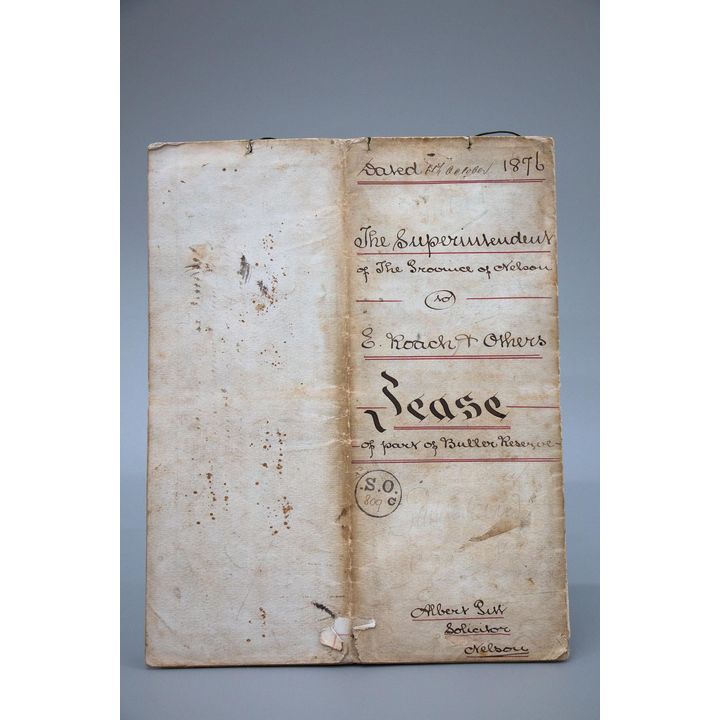 Dated October 1876
The Superintendent
of The Province of Nelson
to
E. Roach & Others
Lease
of part of Buller Reserve
S.O.
809
C
Albert Pitt
Solicitor
Nelson